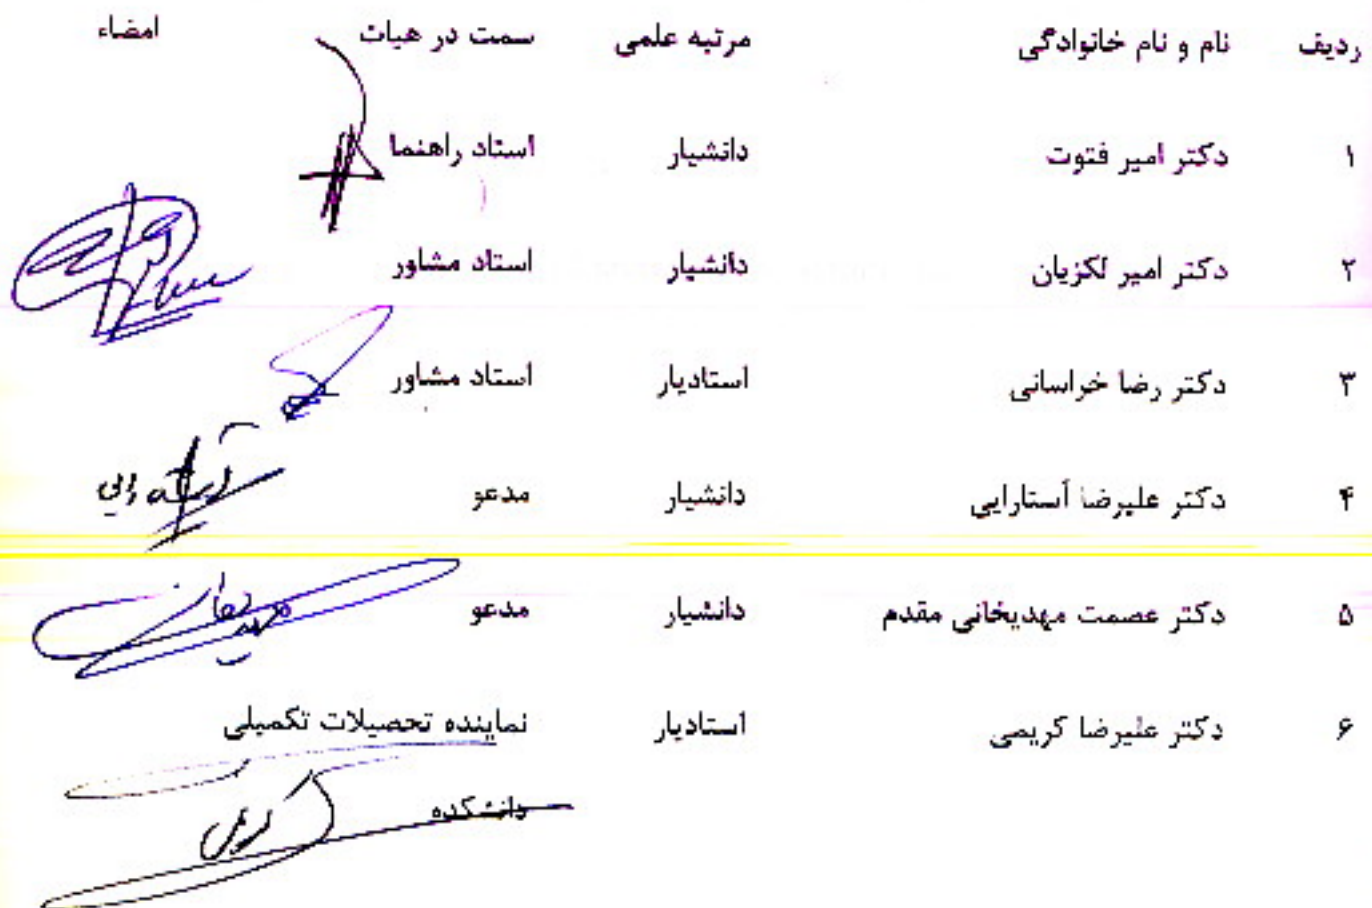 ردیف نام و نام خانوادگی مرتبه علمی سمت در هیات امضاء
۱ دکتر امیر فتوت دانشیار استاد راهنما
۲ دکتر امیر لکزیان دانشیار استاد مشاور
۳ دکتر رضا خراسانی استادیار استاد مشاور
۴ دکتر علیرضا آستارایی دانشیار مدعو
۵ دکتر عصمت مهدیخانی مقدم دانشیار مدعو
۶ دکتر علیرضا کریمی استادیار نماینده تحصیلات تکمیلی
دانشکده